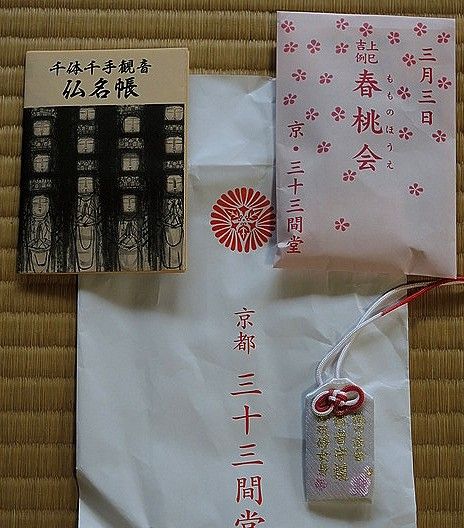 千体千手観音
仏名帳
三月三日
上巳
吉例
春桃会
もものほうえ
京・三十三間堂
京都 三十三間堂